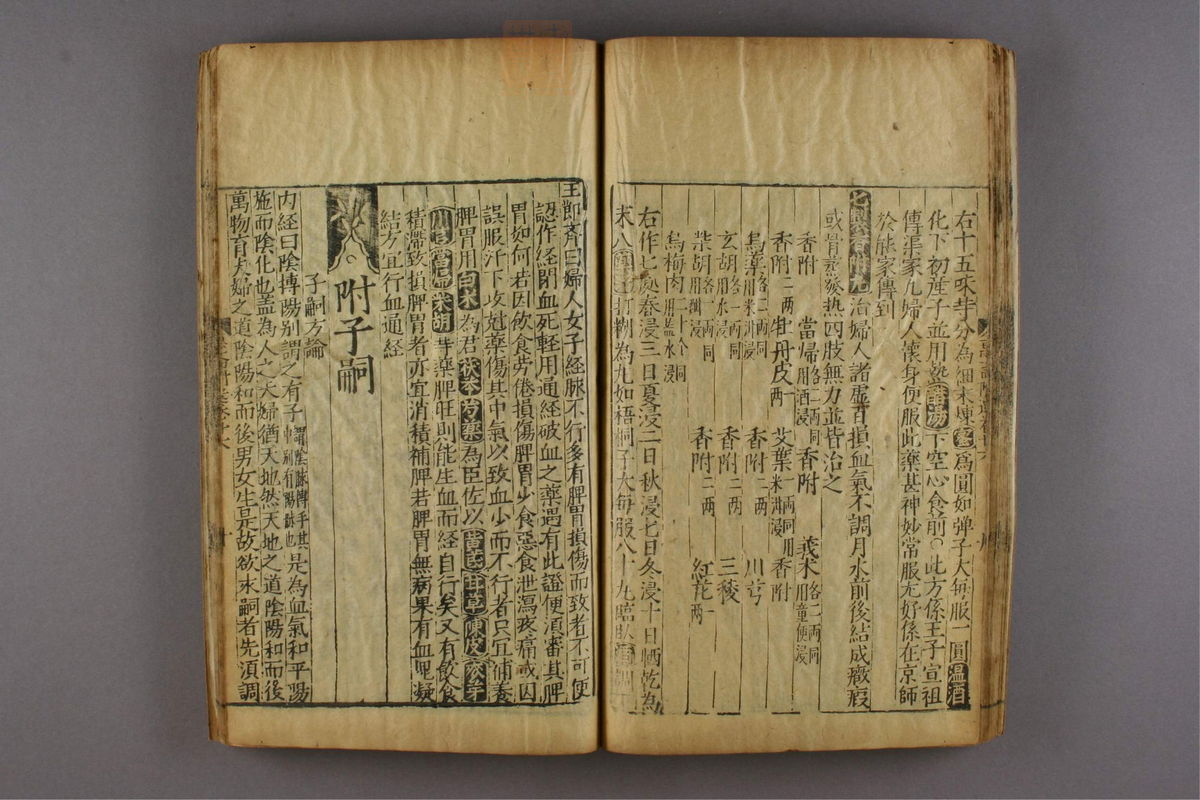 右十五味等分為細末煉蜜為圓如弹子大每服一圓温酒
化下初産子並用墊湯下空心食前○此方係王子宣祖
傳渠家凡婦人懷身便服此藥甚神妙常服尤好係在京師
於熊家傳到
七製香附丸治婦人諸虚百損血氣不調月水前後結成癥瘕
或骨蒸發热四肢無力並皆治之
香附二两 當帰各二两同用酒浸 香附 莪术各二两同用童便浸
香附二两 牡丹皮一两 艾葉一两同用米泔浸 香附
烏藥各二两同用米泔浸 香附二两 川芎
玄胡各一两同用水浸 香附二两 三稜
柴胡各一两同用醋浸 香附二两 紅花一两
烏梅肉二十个同用盐水浸
右作七處春浸三日夏浸二日秋浸七日冬浸十日晒乾為
末八打糊為丸如梧桐子大每服八十丸臨臥
王節斉曰婦人女子経脉不行多有脾胃損傷而致者不可便
認作経閉血死軽用通経破血之藥遇有此證便須審其脾
胃如何若因飲食劳倦損傷脾胃少食惡食泄瀉疼痛或因
誤服汗下攻尅藥傷其中氣以致血少而不行者只宜補養
脾胃用白术為君茯苓芍藥為臣佐以黄芪甘草陳皮麦芽
川芎當帰柴胡等藥脾旺則能生血而経自行矣又有飲食
積滞致損脾胃者亦宜消積補脾若脾胃無病果有血塊凝
結方宜行血通経
附子嗣
子嗣方論
内経曰陰摶陽别謂之有子謂陰脉摶手其中别有陽脉也是為血氣和平陽
施而陰化也盖為人之夫婦猶天地然天地之道陰陽和而後
萬物育夫婦之道陰陽和而後男女生是故欲求嗣者先須調